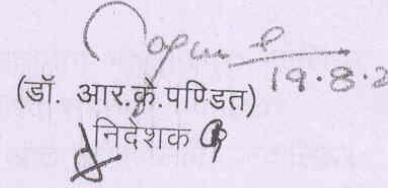 19.8.2
(डॉ. आर.के.पण्डित)
निदेशक